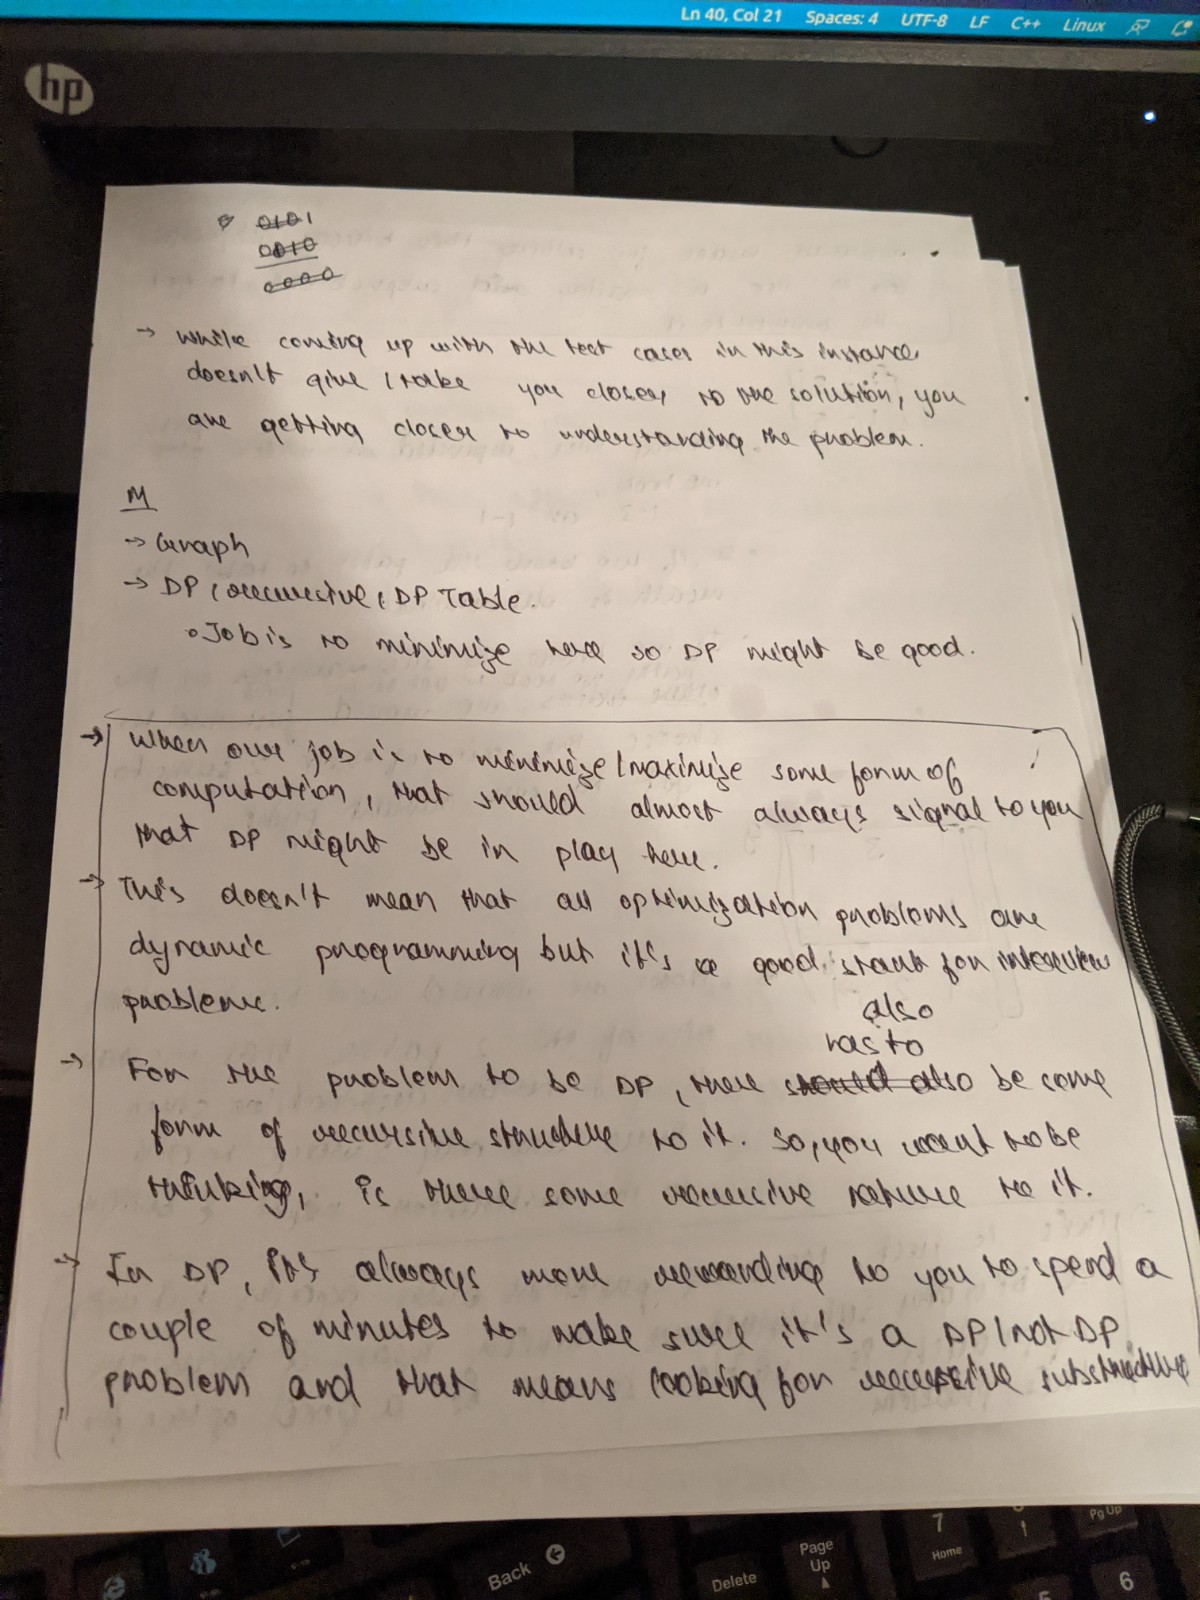 Ln 40, Col 21 Spaces: 4 UTF-8 LF C++ Linux
hp
0101
0010
0000
→ While coming up with the test cases in this instance
doesn't give/take you closer to the solution, you
are getting closer to understanding the problem.
M
→ Graph
→ DP, recursive, DP Table.
Job is to minimize here so DP might be good.
→ When our job is to minimize/maximize some form of
computation, that should almost always signal to you
that DP might be in play here.
→ This doesn't mean that all optimization problems are
dynamic programming but it's a good start for interview
problems.
also
has to
→ For the problem to be DP, there should also be some
form of recursive structure to it. So, you want to be
thinking, is there some recursive nature to it.
→ In DP, it's always more rewarding to you to spend a
couple of minutes to make sure it's a DP/not DP
problem and that means looking for recursive substructure
Back
Delete
Page Up
7
Home
Pg Up
6